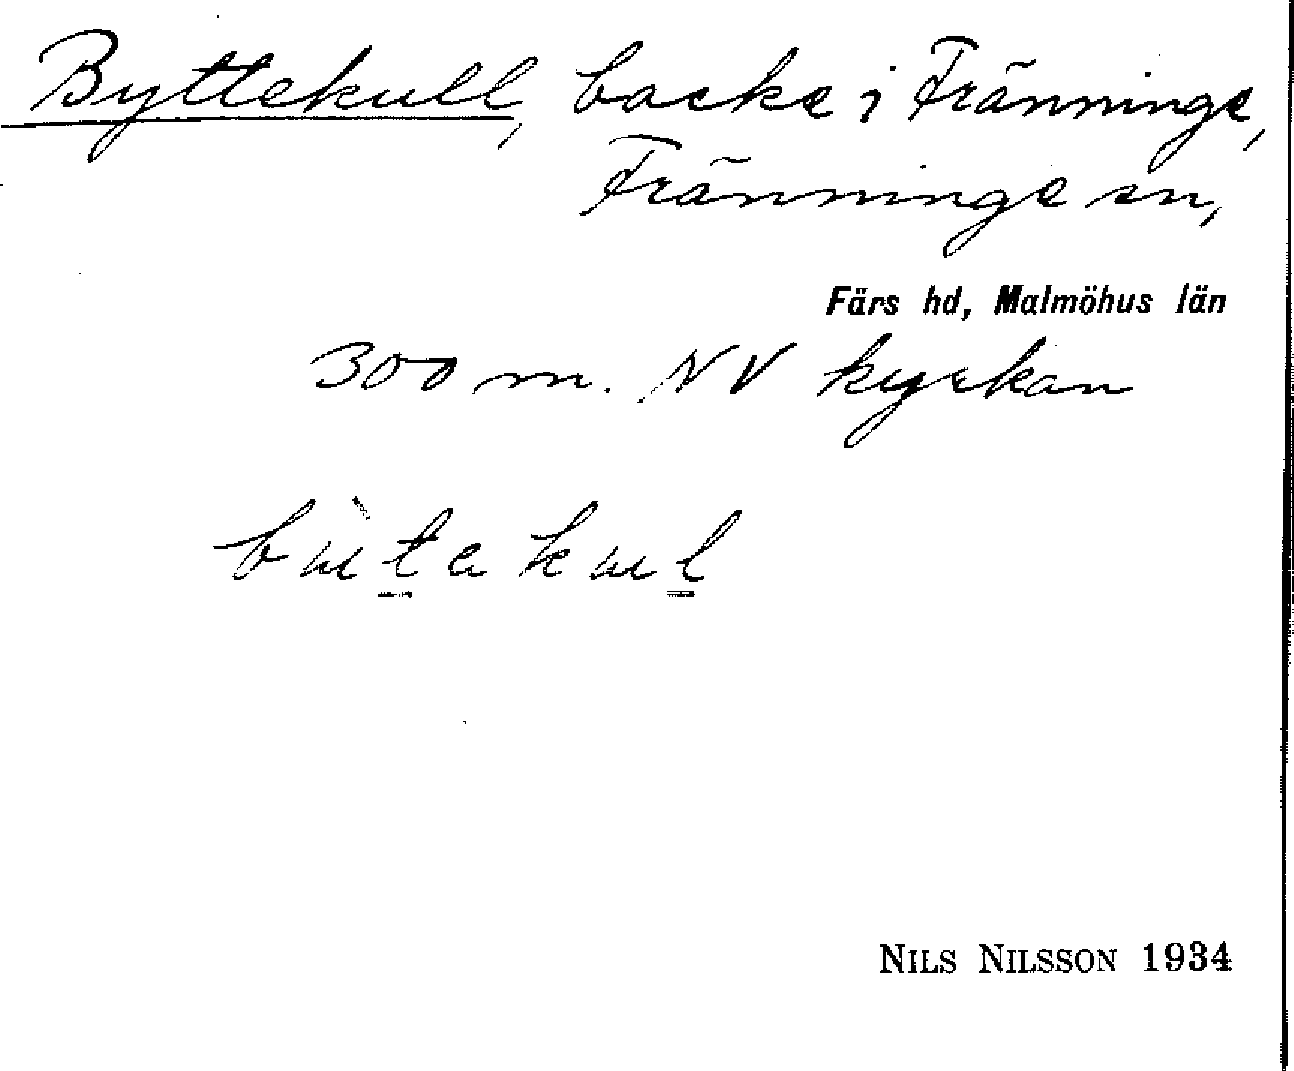 Byttekull, backe i Fränninge,
Fränninge sn,
Färs hd, Malmöhus län
300 m. NV kyrkan
bùtakul
NILS NILSSON 1934